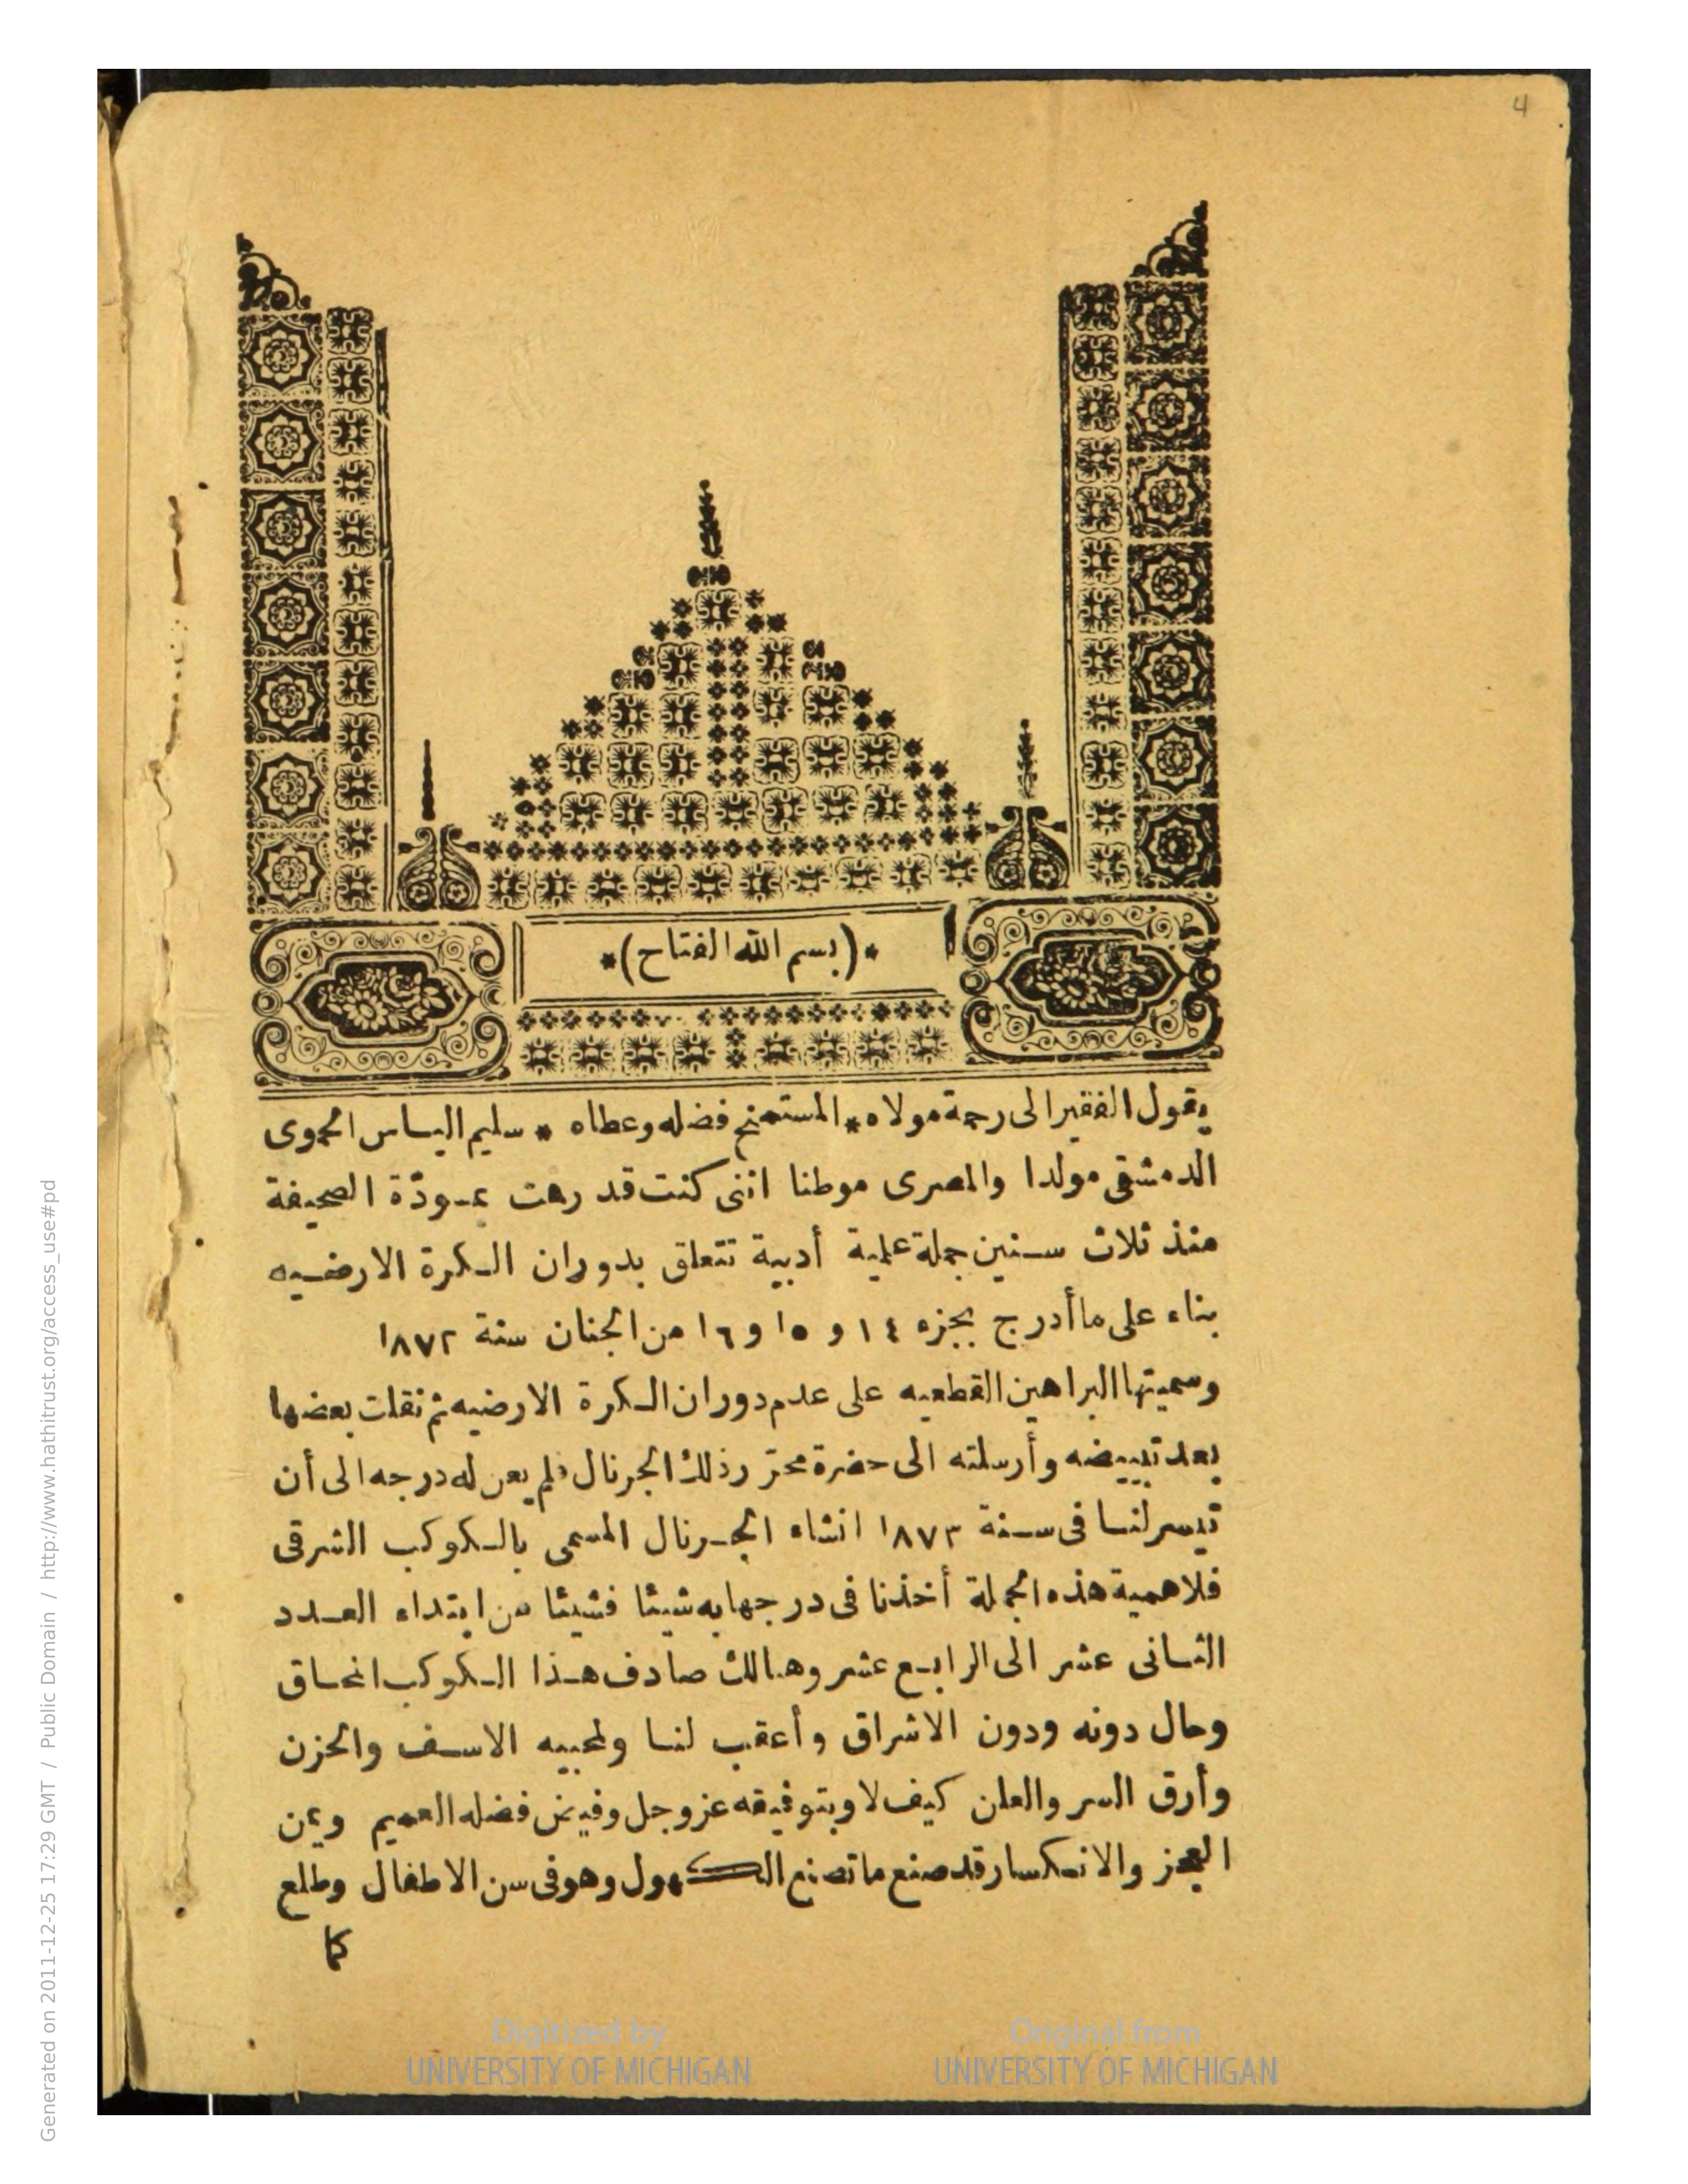 4
*(بسم الله الفتاح)*
يقول الفقير الى رحمة مولاه * المستمنح فضله وعطاه * سليم الياس الحموى
الدمشقى مولدا والمصرى موطنا اننى كنت قد رقت بمودّة الصحيفة
منذ ثلاث سنين جملة علمية أدبية تتعلق بدوران الكرة الارضيه
بناء على ما أدرج بجزء ١٤ و ١٥ و ١٦ من الجنان سنة ١٨٧٢
وسميتها البراهين القطعيه على عدم دوران الكرة الارضيه ثم نقلت بعضها
بعد تبييضه وأرسلته الى حضرة محرّر ذلك الجرنال فلم يعن له درجه الى أن
تيسر لنا فى سنة ١٨٧٣ انشاء الجرنال المسمى بالكوكب الشرقى
فلاهمية هذه الجملة أخذنا فى درجها به شيئا فشيئا من ابتداء العدد
الثانى عشر الى الرابع عشر وهنالك صادف هذا الكوكب انمحاق
وحال دونه ودون الاشراق وأعقب لنا ولمحبيه الاسف والحزن
وأرق السر والعلن كيف لا وبتوفيقه عز وجل وفيض فضله العميم وبمن
العجز والانكسار قد صنع ما تصنع الكهول وهو فى سن الاطفال وطلع
كما
Digitized by
UNIVERSITY OF MICHIGAN
Original from
UNIVERSITY OF MICHIGAN
Generated on 2011-12-25 17:29 GMT / Public Domain / http://www.hathitrust.org/access_use#pd